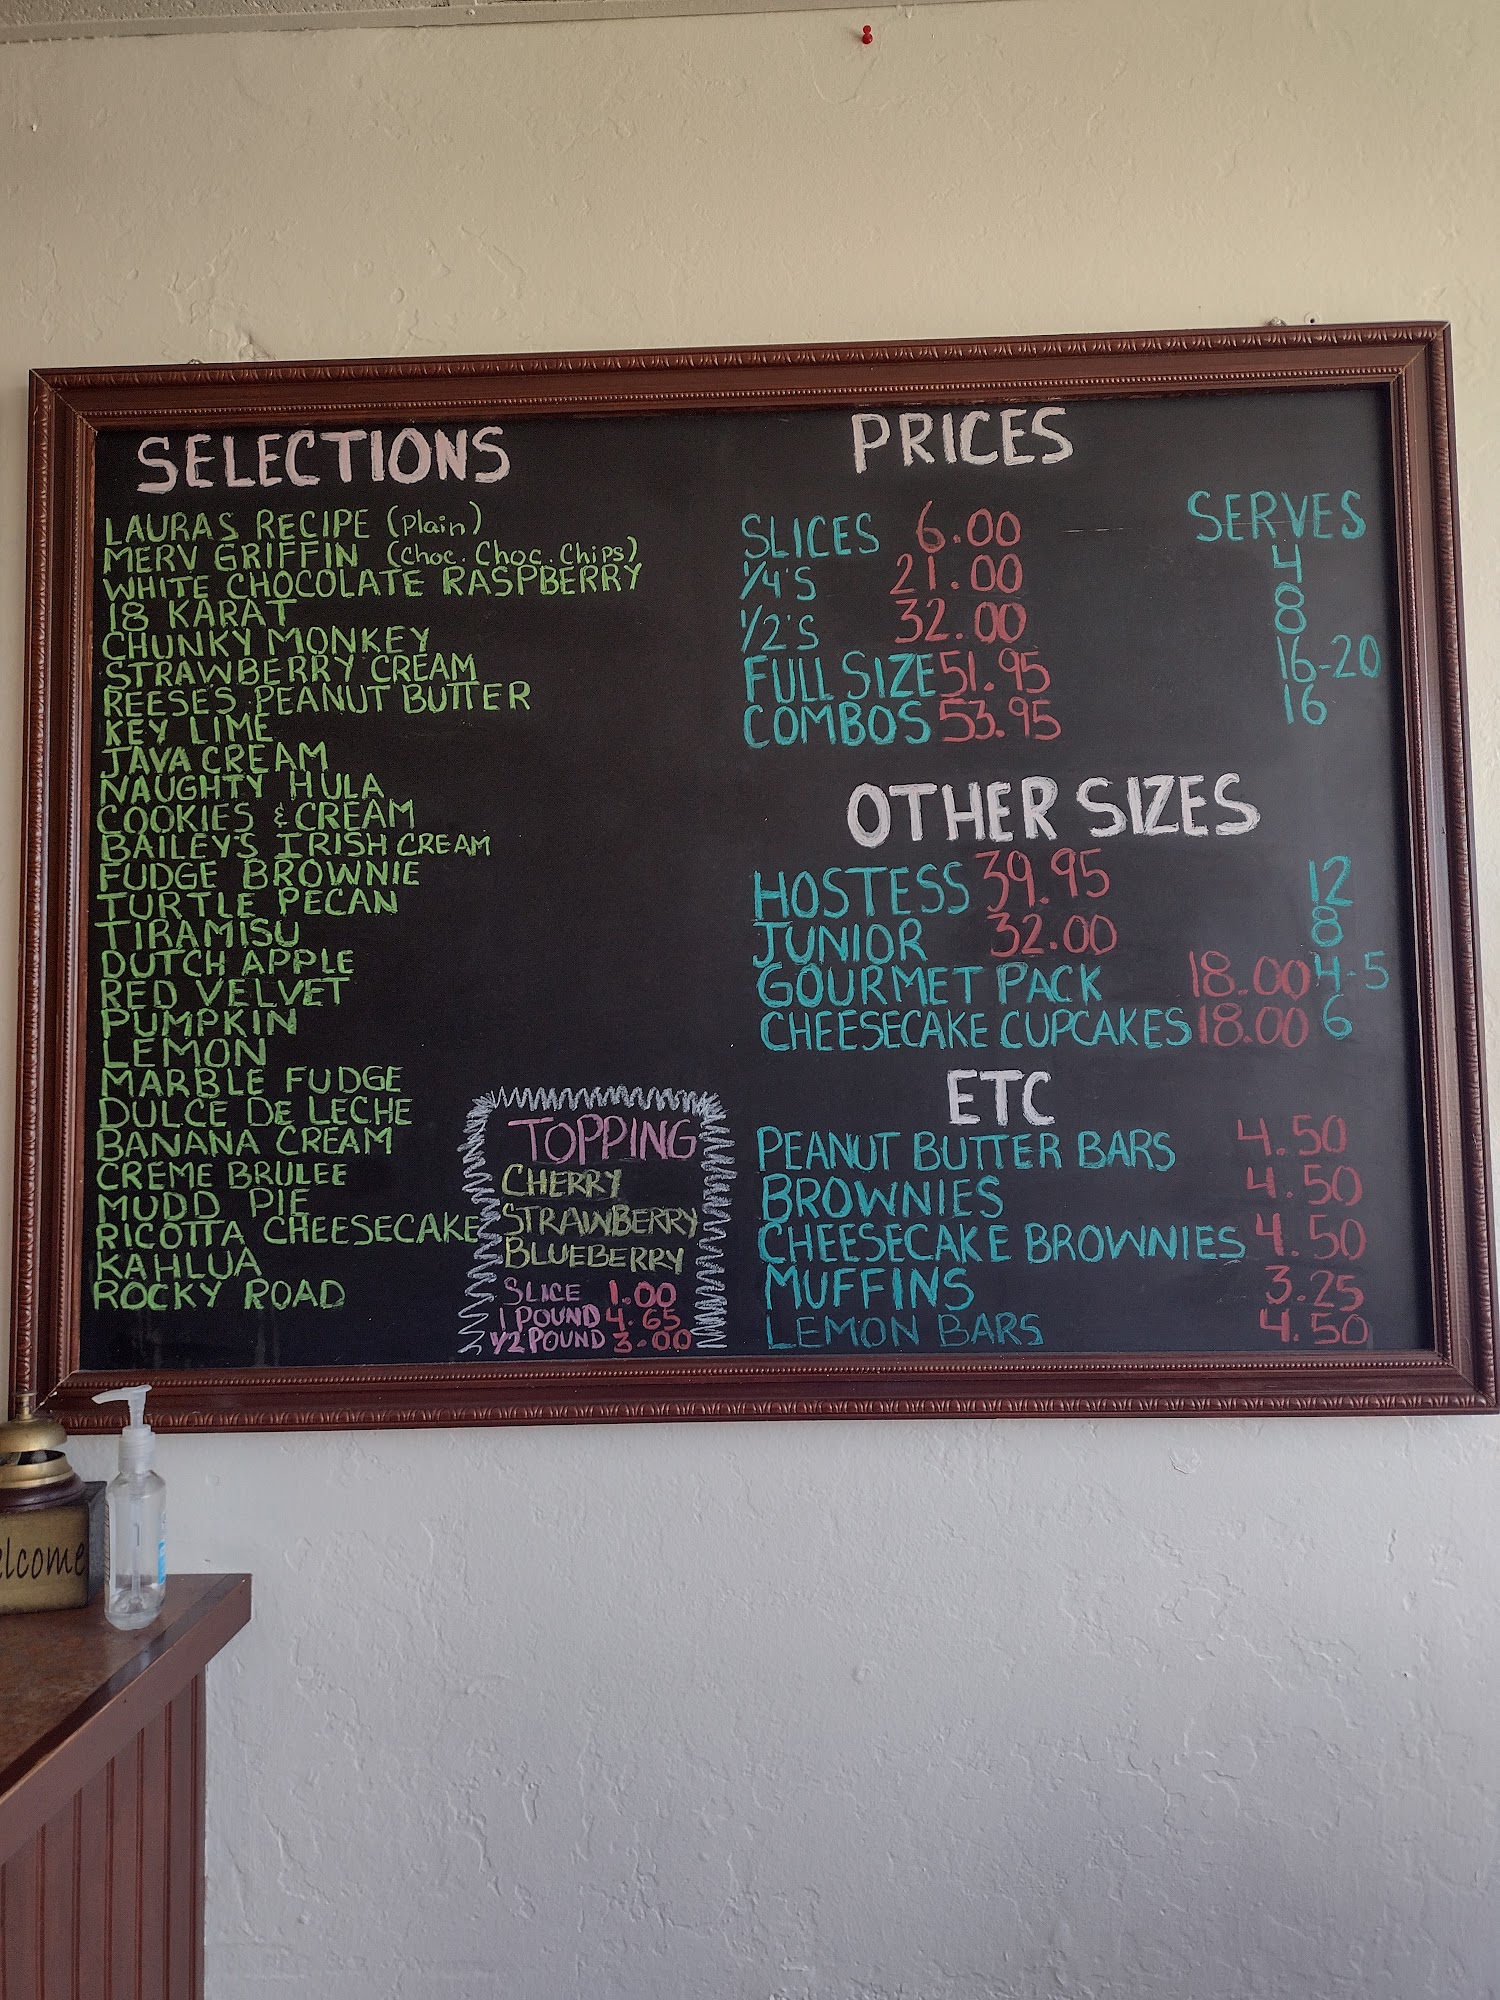 SELECTIONS
LAURAS RECIPE (Plain)
MERV GRIFFIN (Choc. Choc. Chips)
WHITE CHOCOLATE RASPBERRY
18 KARAT
CHUNKY MONKEY
STRAWBERRY CREAM
REESE'S PEANUT BUTTER
KEY LIME
JAVA CREAM
NAUGHTY HULA
COOKIES & CREAM
BAILEY'S IRISH CREAM
FUDGE BROWNIE
TURTLE PECAN
TIRAMISU
DUTCH APPLE
RED VELVET
PUMPKIN
LEMON
MARBLE FUDGE
DULCE DE LECHE
BANANA CREAM
CREME BRULEE
MUDD PIE
RICOTTA CHEESECAKE
KAHLUA
ROCKY ROAD
TOPPING
CHERRY
STRAWBERRY
BLUEBERRY
SLICE 1.00
1 POUND 4.65
1/2 POUND 3.00
PRICES
SERVES
SLICES 6.00
1/4'S 21.00 4
1/2'S 32.00 8
FULL SIZE 51.95 16-20
COMBOS 53.95 16
OTHER SIZES
HOSTESS 39.95 12
JUNIOR 32.00 8
GOURMET PACK 18.00 4-5
CHEESECAKE CUPCAKES 18.00 6
ETC
PEANUT BUTTER BARS 4.50
BROWNIES 4.50
CHEESECAKE BROWNIES 4.50
MUFFINS 3.25
LEMON BARS 4.50
elcome